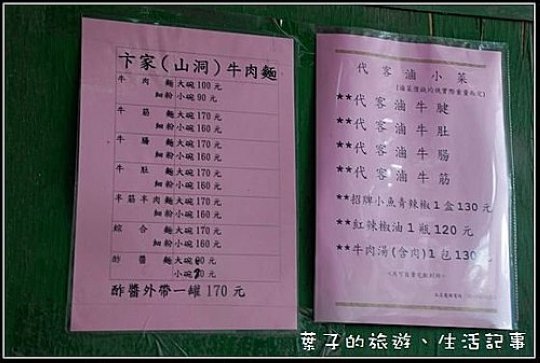 卞家(山洞)牛肉麵
牛 肉 麵大碗100元
細粉小碗 90元
牛 筋 麵大碗170元
細粉小碗160元
牛 腸 麵大碗170元
細粉小碗160元
牛 肚 麵大碗170元
細粉小碗160元
半筋半肉麵大碗170元
細粉小碗160元
綜 合 麵大碗170元
細粉小碗160元
酢 醬 麵大碗
小碗
酢醬外帶一罐170元
代客滷小菜
**代客滷牛腱
**代客滷牛肚
**代客滷牛腸
**代客滷牛筋
**招牌小魚青辣椒1盒130元
**紅辣椒油1瓶120元
**牛肉湯(含肉)1包130元
葉子的旅遊、生活記事